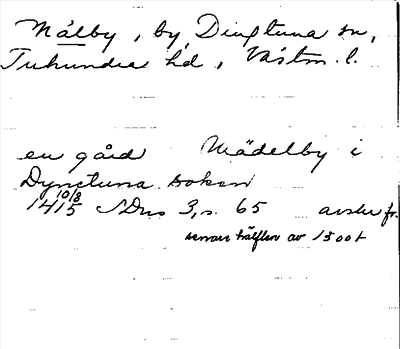 Målby, by, Dingtuna sn,
Tuhundra hd, Västm. l.
en gård Mädelby i
Dynctuna soken
10/8
1415 SDns 3, s. 65 avskr fr.
senare hälften av 1500t